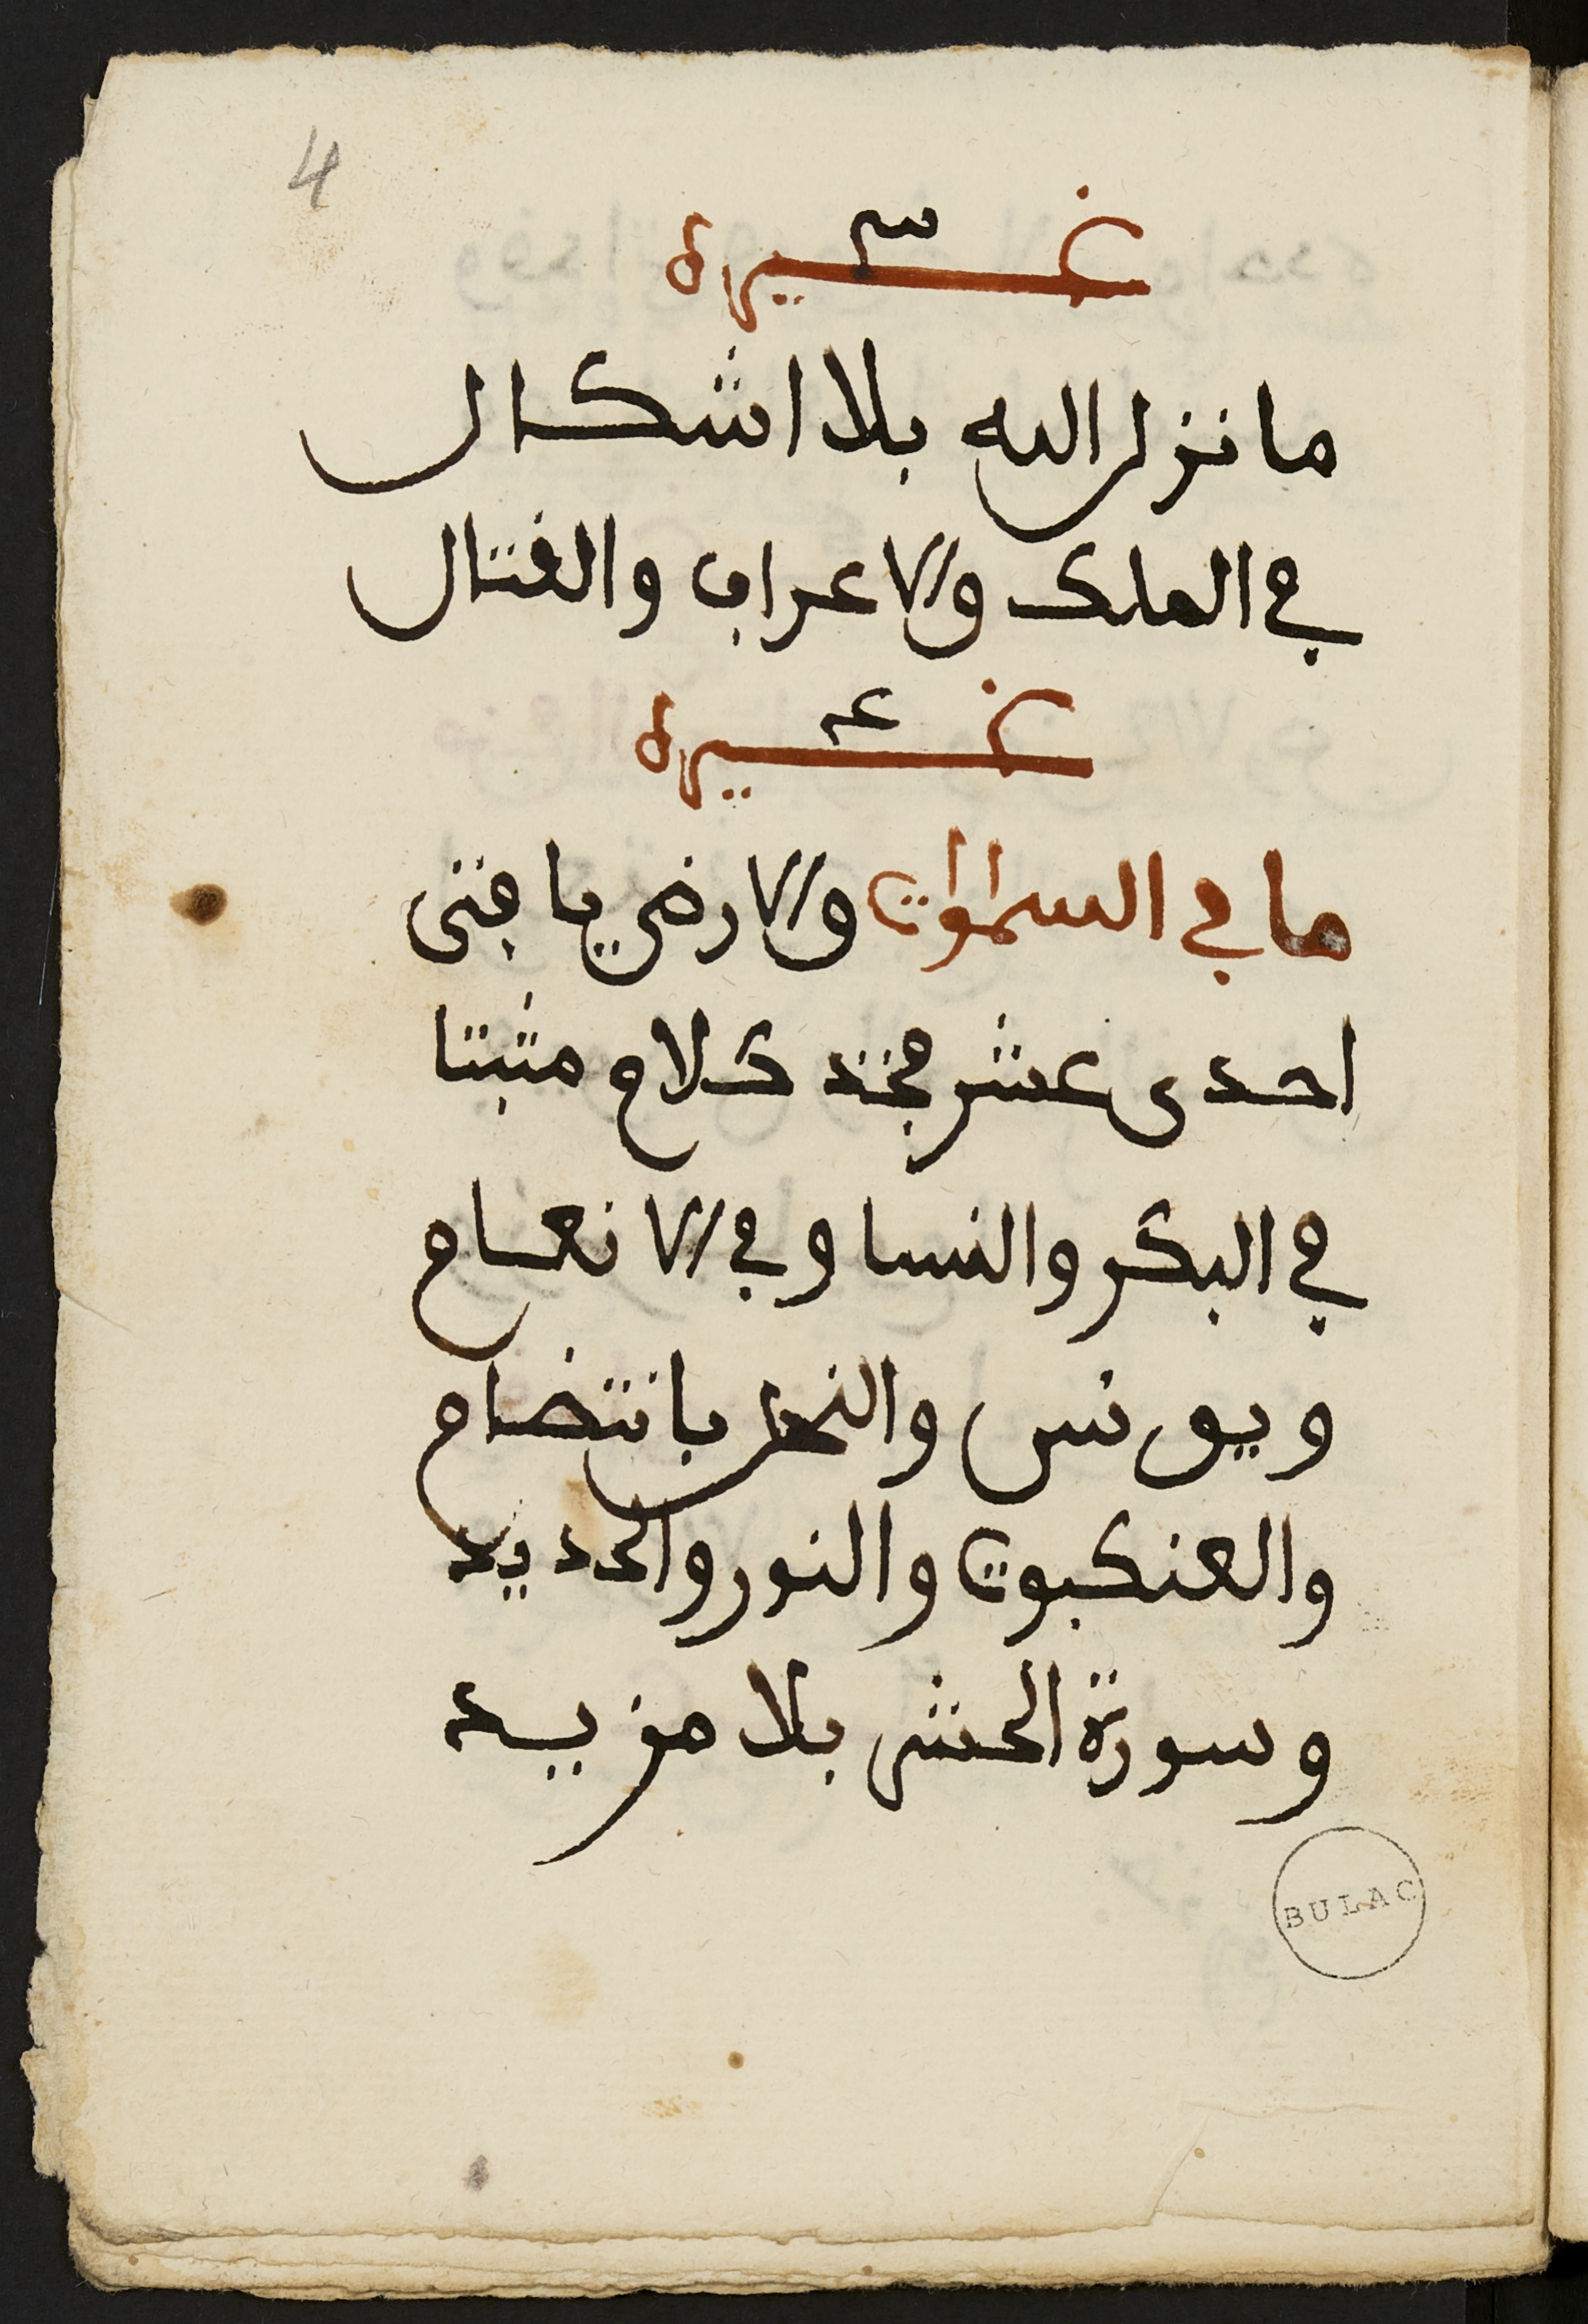 4
غيره
ما نزل الله بلا اشكال
في الملك والاعراف والقتال
غيره
ما في السموات والارض يا فتى
احدى عشر فخذ كلام مثبتا
في البكر والنسا وفي الانعام
ويونس والنحل بانتضام
والعنكبوت والنور والحديد
وسورة الحشر بلا مزيد
BULAC